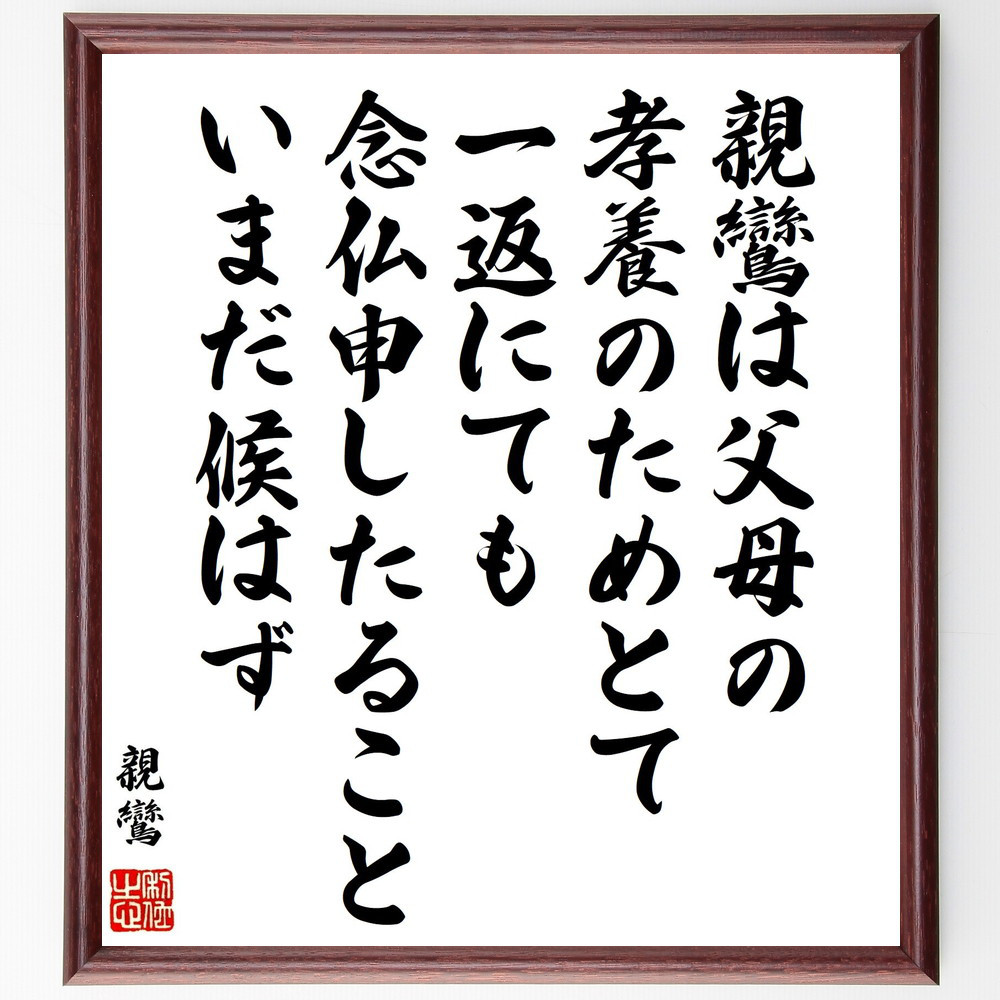 親鸞は父母の
孝養のためとて
一返にても
念仏申したること
いまだ候はず
親鸞